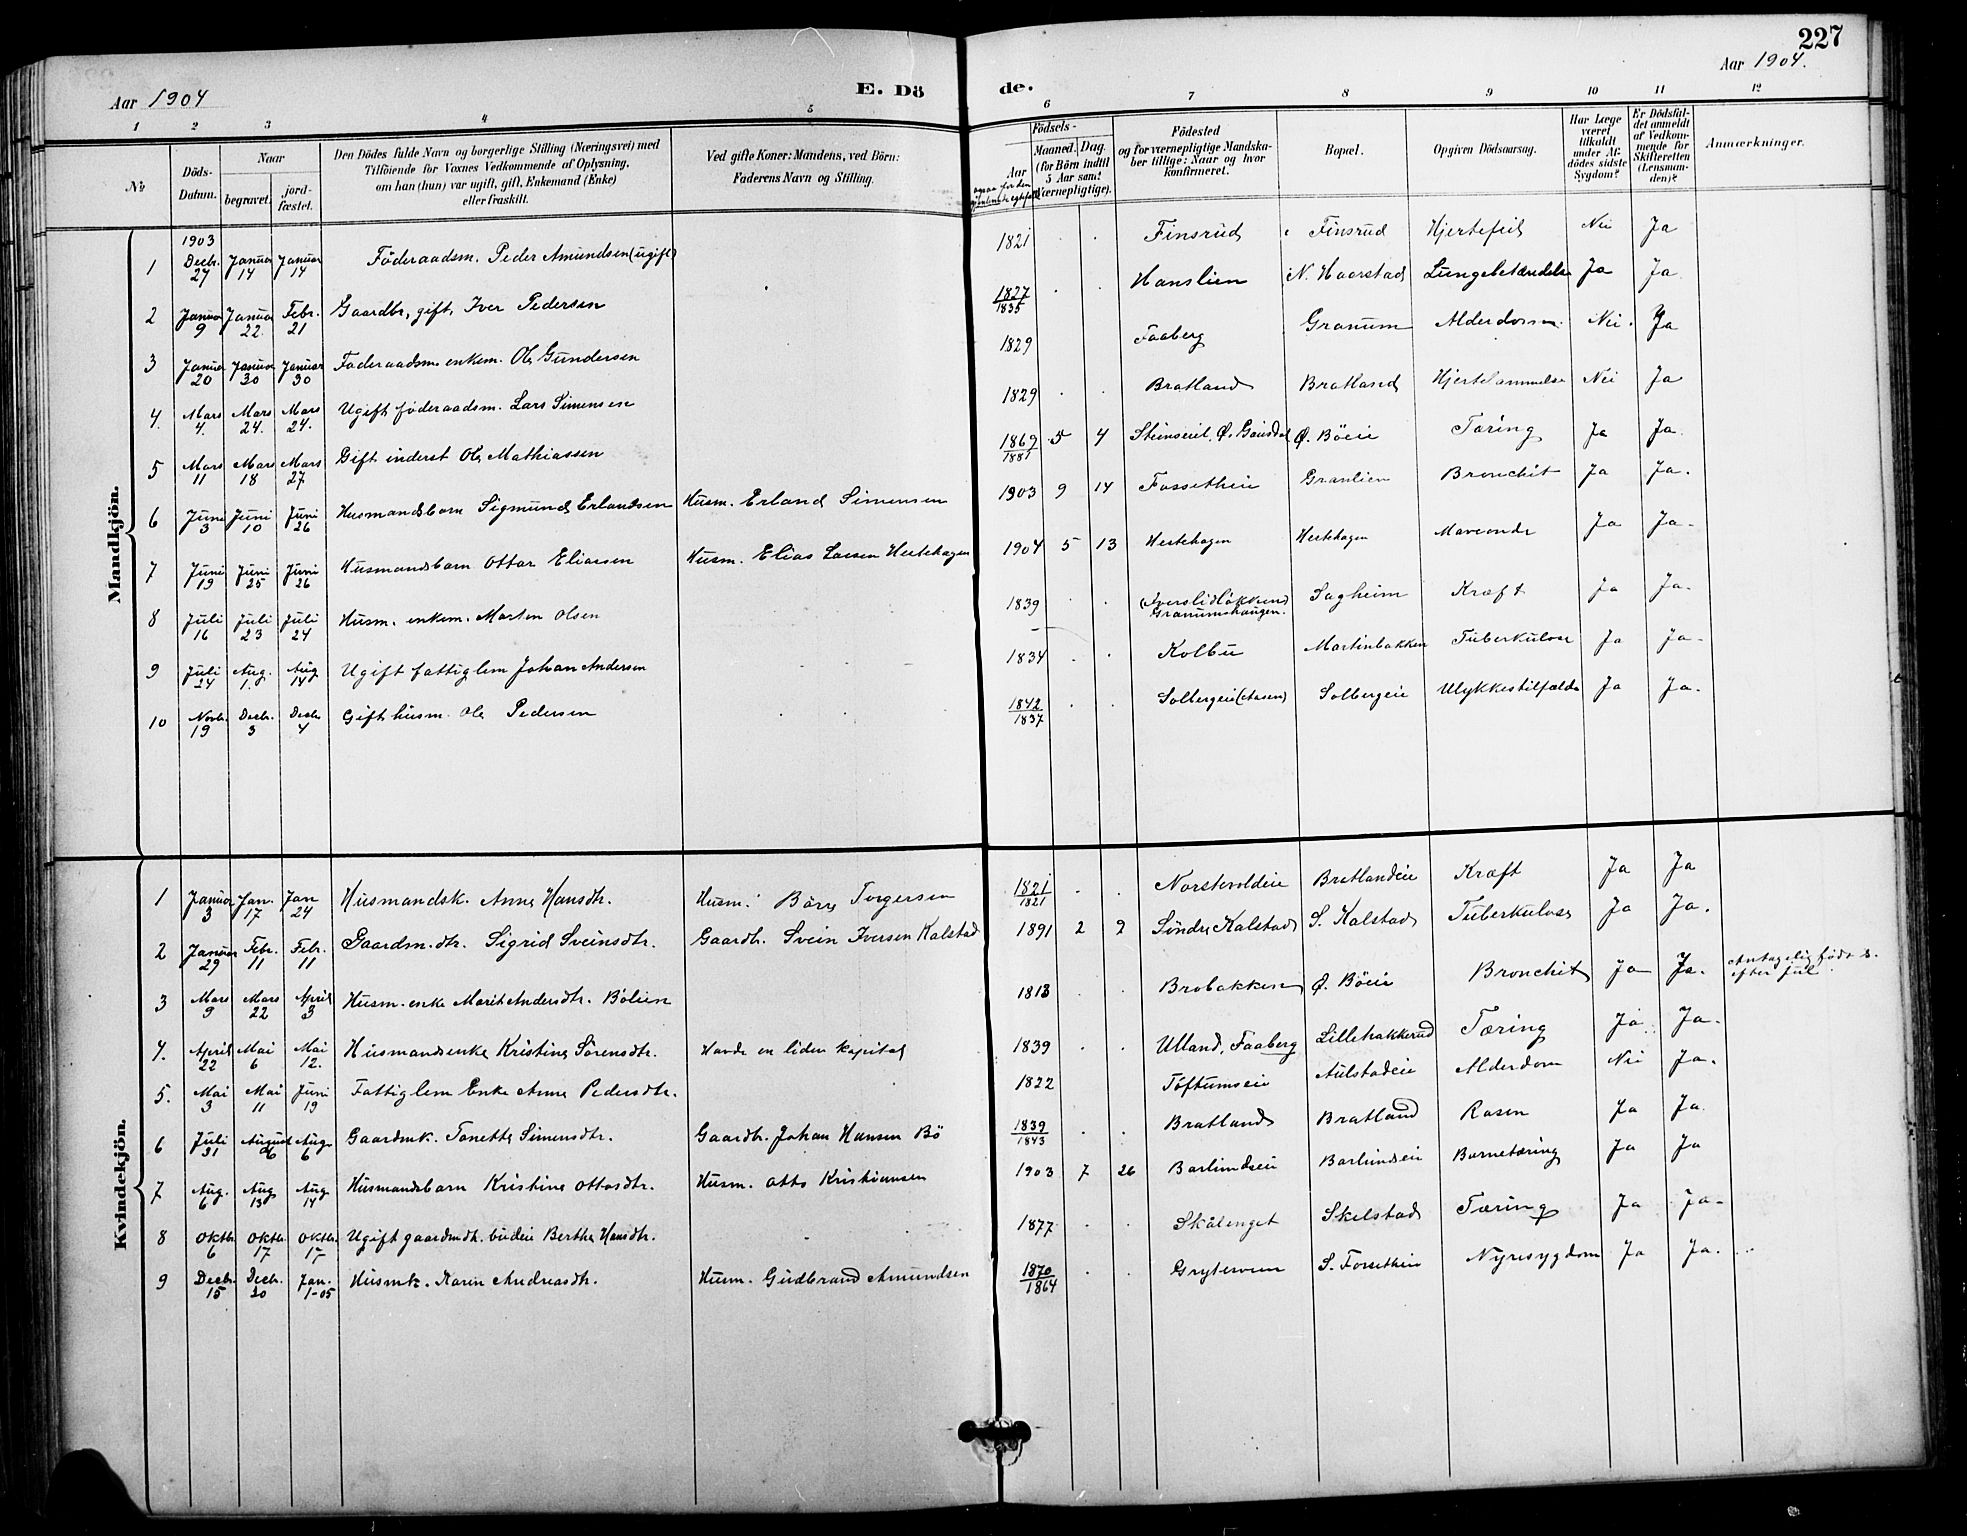 227
Aar 1904
E. Dö
de.
Aar 1904.
1 2 3 4 5 6 7 8 9 10 11 12
No
Döds-Datum.
Naar
begravet.
jord-fæstet.
Den Dödes fulde Navn og borgerlige Stilling (Næringsvei) med
Tilföiende for Voxnes Vedkommende af Oplysning,
om han (hun) var ugift, gift, Enkemand (Enke)
eller fraskilt.
Ved gifte Koner: Mandens, ved Börn:
Faderens Navn og Stilling.
Födsels-
Aar
Maaned.
Dag.
(for Börn indtil
5 Aar samt
Værnepligtige).
Födested
og for værnepligtige Mandska-
ber tillige: Naar og hvor
konfirmeret.
Bopæl.
Opgiven Dödsaarsag.
Har Læge
været
tilkaldt
under Af-
dödes sidste
Sygdom?
Er Dödsfal-
det anmeldt
af Vedkom-
mende for
Skifteretten
(Lensman-
den)?
Anmærkninger.
Mandkjön.
1 1903 Decbr. 27 Januar 14 Januar 14 Föderaadsm. Peder Amundsen (ugift) 1821 . . Finsrud Finsrud Hjertefeil Nei Ja
2 Januar 9 Januar 22. Febr. 21 Gaardbr, gift, Iver Pedersen 1827/1835 . . Hanslien N. Haarstad Lungebetændelse Ja Ja
3 Januar 20 Januar 30 Januar 30 Föderaadsm. enkem. Ole Gundersen 1829 Faaberg Granum Alderdom Nei. Ja
4. Mars 4. Mars 24. Mars 24. Ugift föderaadsm. Lars Simensen 1829 . . Bratland Bratland Nei Ja
5 Mars 11 Mars 18 Mars 27 Gift inderst Ole Mathiassen 1869/1881 5 4 Ø. Gausdal Ø. Böeie Tæring Ja Ja.
6 Juni 3 Juni 10 Juni 26 Husmandsbarn Sigmund Erlandsen Husm. Erland Simensen 1903 9 14 Granlien Bronchit Ja Ja.
7 Juni 19 Juni 25 Juni 26 Husmandsbarn Ottar Eliasen Husm. Elias Larsen Hertehagen 1904 5 13 Hertehagen Hertehagen Maveonde Ja Ja.
8 Juli 16 Juli 23 Juli 24 Husm. enkem. Morten Olsen 1839 . . (Iverslidløkken) Granumshaugen. Sagheim Kræft Ja Ja.
9 Juli 24 Aug. 1. Aug. 14 Ugift fattiglem Johan Andersen 1834 . . Kolbu Martinbakken Tuberkulose Ja Ja.
10 Novbr. 19 Decbr. 3 Decbr. 4 Gift husm. Ole Pedersen 1842/1837 . . Solbergeie (Aasen) Solbergeie Ulykkestilfælde Ja Ja.
Kvindekjön.
1 Januar 3 Jan. 17 Jan 24 Husmandsk. Anne Hansdtr. Husm. Börre Torgersen 1821/1821 . . Bratlandeie Kræft Ja Ja
2 Januar 29 Febr. 11 Febr. 11 Gaardm.dtr. Sigrid Sveinsdtr. Gaardb. Svein Iversen Kalstad 1891 2 2 Söndre Kalstad S. Kalstad Tuberkulose Ja Ja.
3 Mars 9 Mars 22 April 3 Husm. enke Marit Andersdtr. Bölien 1818 . . Brobakken Ø. Böeie Bronchit Ja Ja. Antagelig födt s. efter Jul
4. April 22 Mai 6 Mai 12. Husmandsenke Kristine Sörensdtr. Havde en liden kapital 1839 . . Ulland, Faaberg Lillehakkerud Tæring Ja Ja.
5. Mai 3 Mai 11 Juni 19 Fattiglem Enke Anne Pedersdtr. 1822 Toftumseie Aulstadeie Alderdom Nei Ja.
6 Juli 31 August 6 Aug. 6 Gaardmk. Tonette Simensdtr. Gaardb. Johan Hansen Bö 1839/1843 . . Bratland Bratland Rosen Ja Ja.
7 Aug. 6 Aug. 13 Aug. 14 Husmandsbarn Kristine Ottosdtr. Husm. Otto Kristiansen 1903 7 26 Barlundseie Barlundseie Barnetæring Ja Ja
8 Oktbr. 6 Oktbr. 17 Oktbr. 17 Ugift gaardmdt. budeie Berthe Hansdtr. 1877 . . Skålenget Skelstad Tæring Ja Ja.
9 Decbr. 15 Decbr. 20 Jan. 1-05 Husmk. Karin Andreasdtr. Husm. Gudbrand Amundsen 1870/1864 . . S. Forsetheie Nyresygdom Ja Ja.